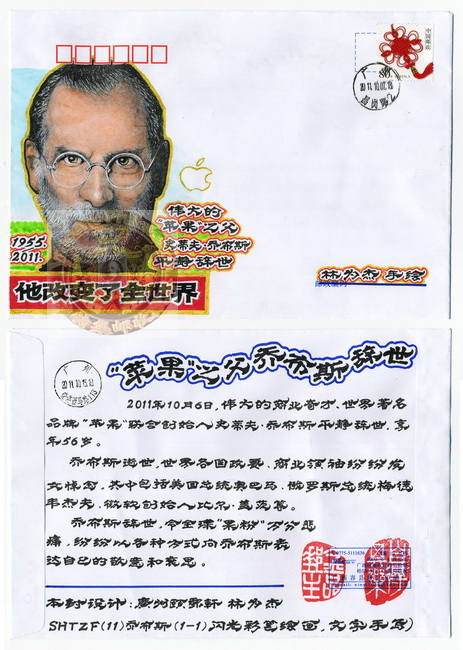 中国邮政
80分
CHINA
广州
2011.10.07.18
伟大的
"苹果"之父
史蒂夫·乔布斯
平静辞世
1955.
2011.
他改变了全世界
林为杰手绘
邮政编码
"苹果"之父乔布斯辞世
广州
2011年10月6日,伟大的商业奇才、世界著名
品牌"苹果"联合创始人史蒂夫·乔布斯平静辞世,享
年56岁。
乔布斯逝世,世界各国政要、商业领袖纷纷发
文悼念,其中包括美国总统奥巴马、俄罗斯总统梅德
韦杰夫、微软创始人比尔·盖茨等。
乔布斯辞世,令全球"果粉"万分悲
痛,纷纷以各种方式向乔布斯表
达自己的敬意和哀思。
本封设计:广州颐帚轩 林为杰
SHTZF(11)乔布斯(1-1)闪光彩笔绘画,文字手写)